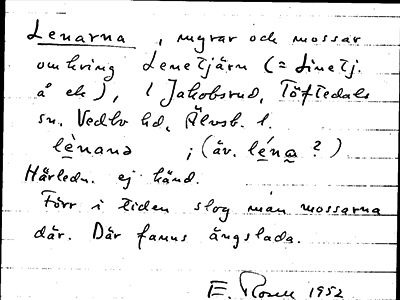 Lenarna, myrar och mossar
omkring Lenetjärn (= Linetj.
å ek), i Jakobsrud, Töftedals
sn. Vedbo hd, Älvsb. l.
lènanə ; (äv. léna ?)
Härledn. ej känd.
Förr i tiden slog man mossarna
där. Där fanns ängslada.
E. Rosell 1952